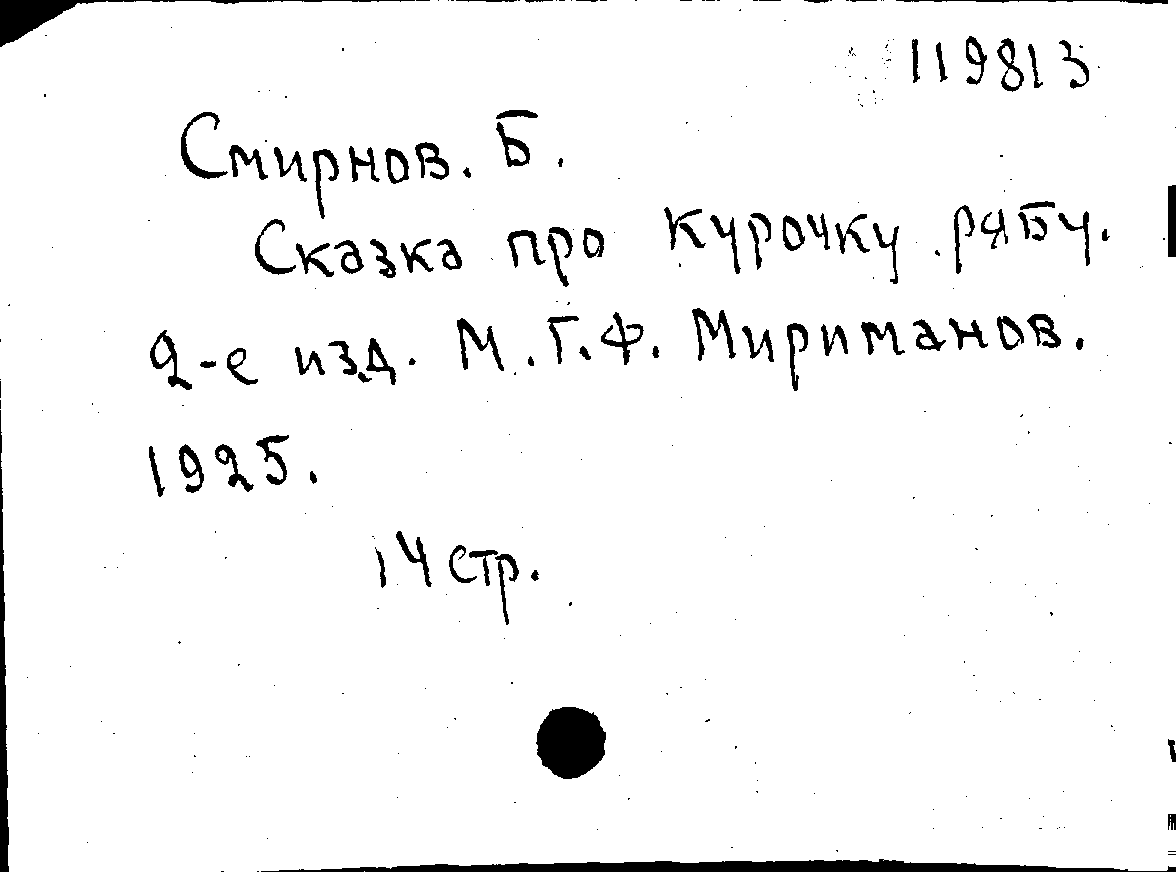 119813
Смирнов. Б.
Сказка про курочку рябу.
2-е изд. М. Г.Ф. Мириманов.
1925.
14 стр.